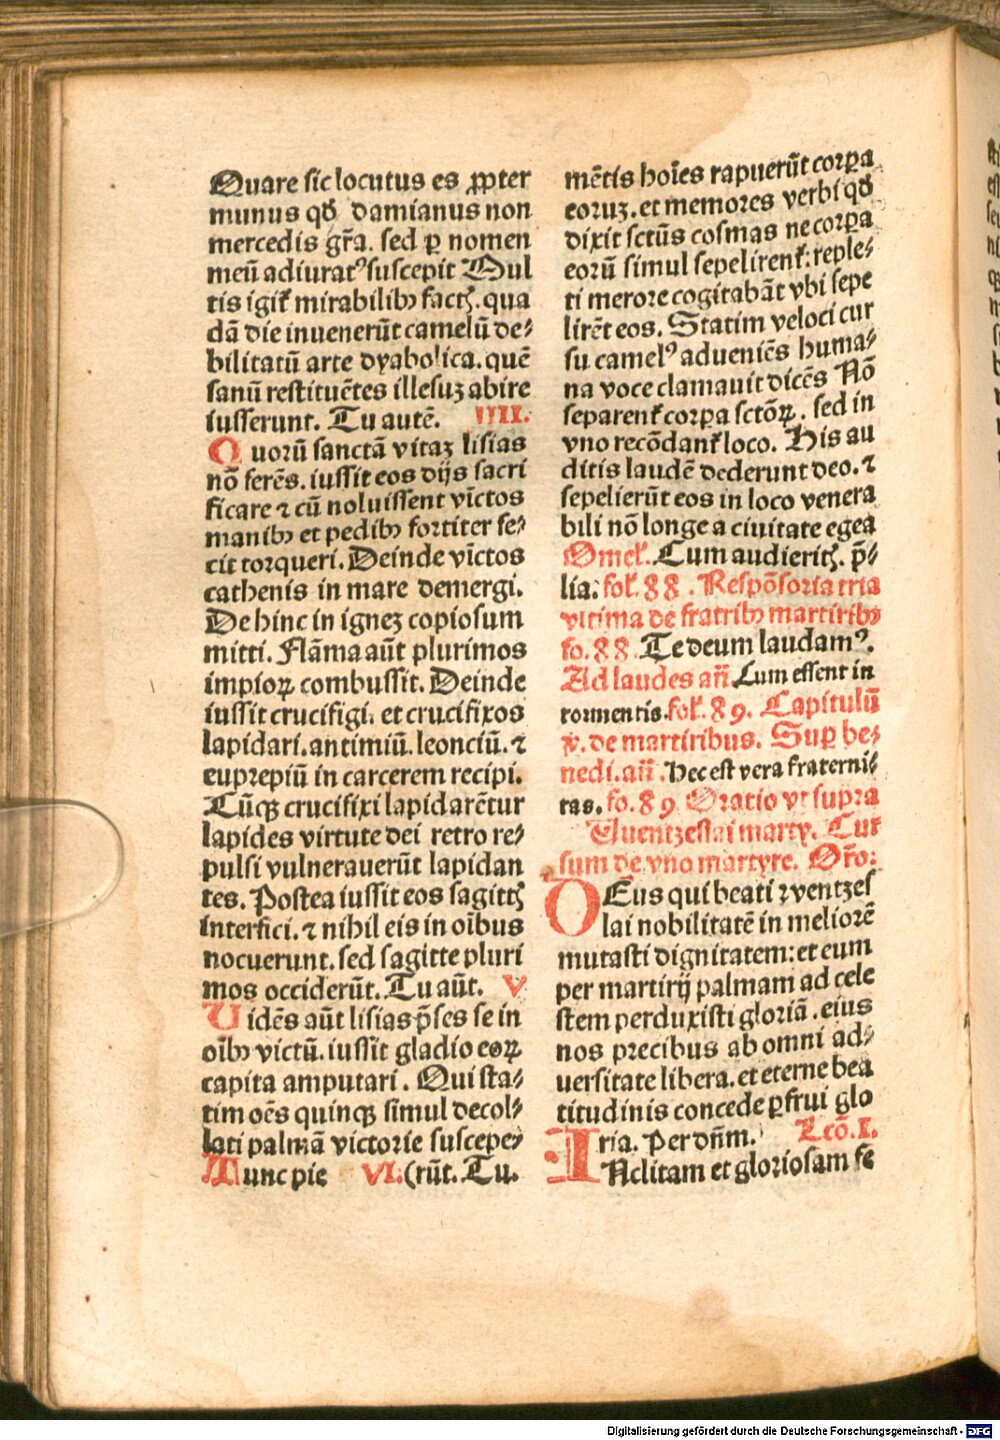 Quare sic locutus es ꝓpter
munus qđ damianus non
mercedis gr̄a. sed ꝑ nomen
meū adiuratꝰ suscepit Mul
tis igit᷑ mirabilibꝫ factꝭ. qua
dā die inuenerūt camelū de⸗
bilitatū arte dyabolica. quē
sanū restituētes illesuꝫ abire
iusserunt. Tu autē. IIII.
Quorū sanctā vitaꝫ lisias
nō ferēs. iussit eos dijs sacri
ficare ⁊ cū noluissent vīctos
manibꝫ et pedibꝫ fortiter fe⸗
cit torqueri. Deinde vīctos
cathenis in mare demergi.
Dehinc in igneꝫ copiosum
mitti. Flāma aūt plurimos
impioꝝ combussit. Deinde
iussit crucifigi. et crucifixos
lapidari. antimiū. leonciū. ⁊
euprepiū in carcerem recipi.
Cūqꝫ crucifixi lapidarētur
lapides virtute dei retro re⸗
pulsi vulnerauerūt lapidan
tes. Postea iussit eos sagittꝭ
interfici. ⁊ nihil eis in oībus
nocuerunt. sed sagitte pluri
mos occiderūt. Tu aūt. V
Uidēs aūt lisias p̄ses se in
oībꝫ victū. iussit gladio eoꝝ
capita amputari. Qui sta⸗
tim oēs quinqꝫ simul decol⸗
lati palmā victorie suscepe⸗
Tunc pie VI. (rūt. Tu.
mētis hoīes rapuerūt corꝑa
eoruꝫ. et memores verbi qđ
dixit sctūs cosmas ne corꝑa
eorū simul sepelirent᷑: reple⸗
ti merore cogitabāt vbi sepe
lirēt eos. Statim veloci cur
su camelꝰ adueniēs huma⸗
na voce clamauit dicēs Nō
separent᷑ corꝑa sctōꝝ. sed in
vno recōdant᷑ loco. His au
ditis laudē dederunt deo. ⁊
sepelierūt eos in loco venera
bili nō longe a ciuitate egea
Omel᷑. Cum audieritꝭ. p̄⸗
lia: fol᷑. 88. Respōsoria tria
vltima de fratribꝫ martiribꝫ
fo. 88 Te deum laudamꝰ.
Ad laudes an̄. Cum essent in
tormentis. fol᷑. 89. Capitulū
ꝟ. de martiribus. Suꝑ be⸗
nedi. an̄. Hec est vera fraterni⸗
tas. fo. 89 Oratio vt supra
Eluentzeslai marty. Cur
sum de vno martyre. Or̄o:
DEus qui beati ⁊ventzes
lai nobilitatē in meliorē
mutasti dignitatem: et eum
per martirij palmam ad cele
stem perduxisti gloriā. eius
nos precibus ab omni ad⸗
uersitate libera. et eterne bea
titudinis concede ꝑfrui glo
ria. Per dn̄m. Lcō. I.
INclitam et gloriosam fe
Digitalisierung gefördert durch die Deutsche Forschungsgemeinschaft - DFG